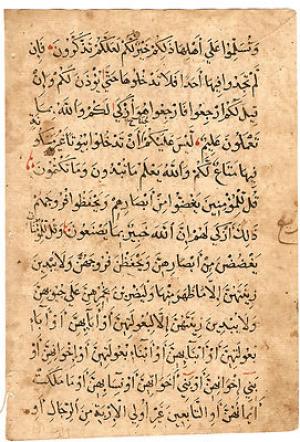 وَتُسَلِّمُوا عَلَى أَهْلِهَا ذَلِكُمْ خَيْرٌ لَكُمْ لَعَلَّكُمْ تَذَكَّرُونَ فَإِنْ
لَمْ تَجِدُوا فِيهَا أَحَدًا فَلَا تَدْخُلُوهَا حَتَّى يُؤْذَنَ لَكُمْ وَإِنْ
قِيلَ لَكُمُ ارْجِعُوا فَارْجِعُوا هُوَ أَزْكَى لَكُمْ وَاللَّهُ بِمَا
تَعْمَلُونَ عَلِيمٌ لَيْسَ عَلَيْكُمْ أَنْ تَدْخُلُوا بُيُوتًا غَيْرَ
فِيهَا مَتَاعٌ لَكُمْ وَاللَّهُ يَعْلَمُ مَا تُبْدُونَ وَمَا تَكْتُمُونَ
قُلْ لِلْمُؤْمِنِينَ يَغُضُّوا مِنْ أَبْصَارِهِمْ وَيَحْفَظُوا فُرُوجَهُمْ
ذَلِكَ أَزْكَى لَهُمْ إِنَّ اللَّهَ خَبِيرٌ بِمَا يَصْنَعُونَ وَقُلْ لِلْمُؤْمِنَاتِ
يَغْضُضْنَ مِنْ أَبْصَارِهِنَّ وَيَحْفَظْنَ فُرُوجَهُنَّ وَلَا يُبْدِينَ
زِينَتَهُنَّ إِلَّا مَا ظَهَرَ مِنْهَا وَلْيَضْرِبْنَ بِخُمُرِهِنَّ عَلَى جُيُوبِهِنَّ
وَلَا يُبْدِينَ زِينَتَهُنَّ إِلَّا لِبُعُولَتِهِنَّ أَوْ آبَائِهِنَّ أَوْ آبَاءِ
بُعُولَتِهِنَّ أَوْ أَبْنَائِهِنَّ أَوْ أَبْنَاءِ بُعُولَتِهِنَّ أَوْ إِخْوَانِهِنَّ أَوْ
بَنِي إِخْوَانِهِنَّ أَوْ بَنِي أَخَوَاتِهِنَّ أَوْ نِسَائِهِنَّ أَوْ مَا مَلَكَتْ
أَيْمَانُهُنَّ أَوِ التَّابِعِينَ غَيْرِ أُولِي الْإِرْبَةِ مِنَ الرِّجَالِ أَوِ